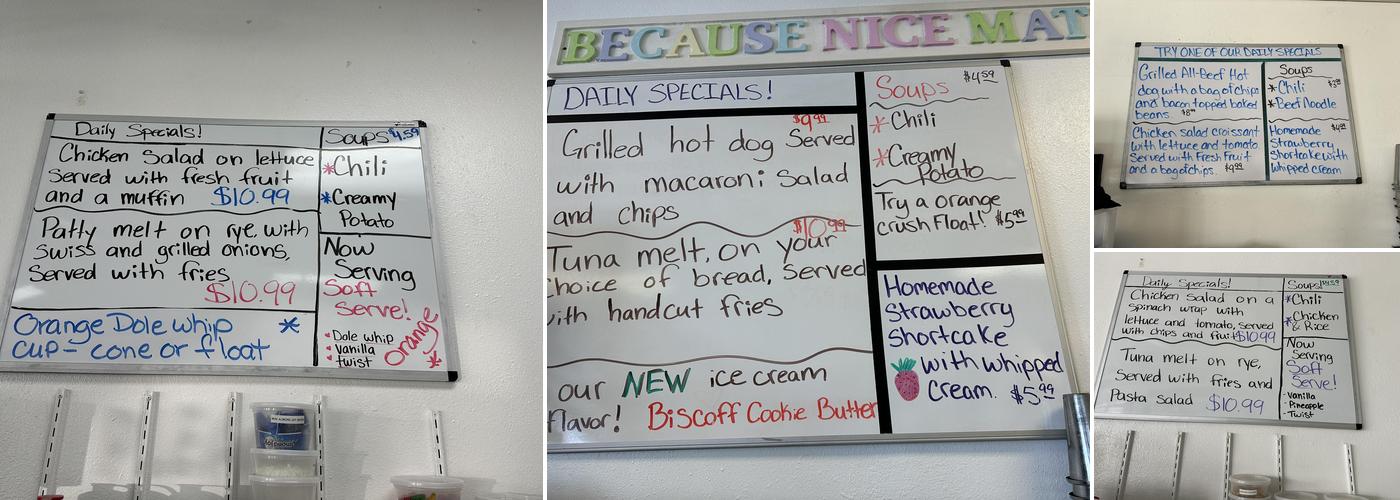 Daily Specials!
Chicken Salad on lettuce
Served with fresh fruit
and a muffin $10.99
Patty melt on rye, with
Swiss and grilled onions,
Served with fries
$10.99
Orange Dole whip *
cup - cone or float
Soups $4.59
*Chili
*Creamy
Potato
Now
Serving
Soft
Serve!
• Dole whip
• Vanilla
• Twist
Orange
*
BECAUSE NICE MAT
DAILY SPECIALS!
$9.99
Grilled hot dog Served
with macaroni Salad
and chips
$10.99
Tuna melt, on your
Choice of bread, Served
with handcut fries
our NEW ice cream
flavor! Biscoff Cookie Butter
Soups $4.59
*Chili
*Creamy
Potato
Try a orange
crush Float! $5.99
Homemade
Strawberry
Shortcake
with whipped
Cream. $5.99
TRY ONE OF OUR DAILY SPECIALS
Grilled All-Beef Hot
dog with a bag of chips
and bacon topped baked
beans.
Chicken salad croissant
with lettuce and tomato
Served with Fresh Fruit
and a bag of chips. $9.99
Soups
*Chili
*Beef Noodle
Homemade
Strawberry
Shortcake with
whipped cream
Daily Specials!
Chicken Salad on a
Spinach wrap with
lettuce and tomato, served
with chips and fruit $10.99
Tuna melt on rye,
Served with fries and
Pasta salad $10.99
Soups! $4.59
*Chili
*Chicken
& Rice
Now
Serving
Soft
Serve!
- Vanilla
- Pineapple
- Twist